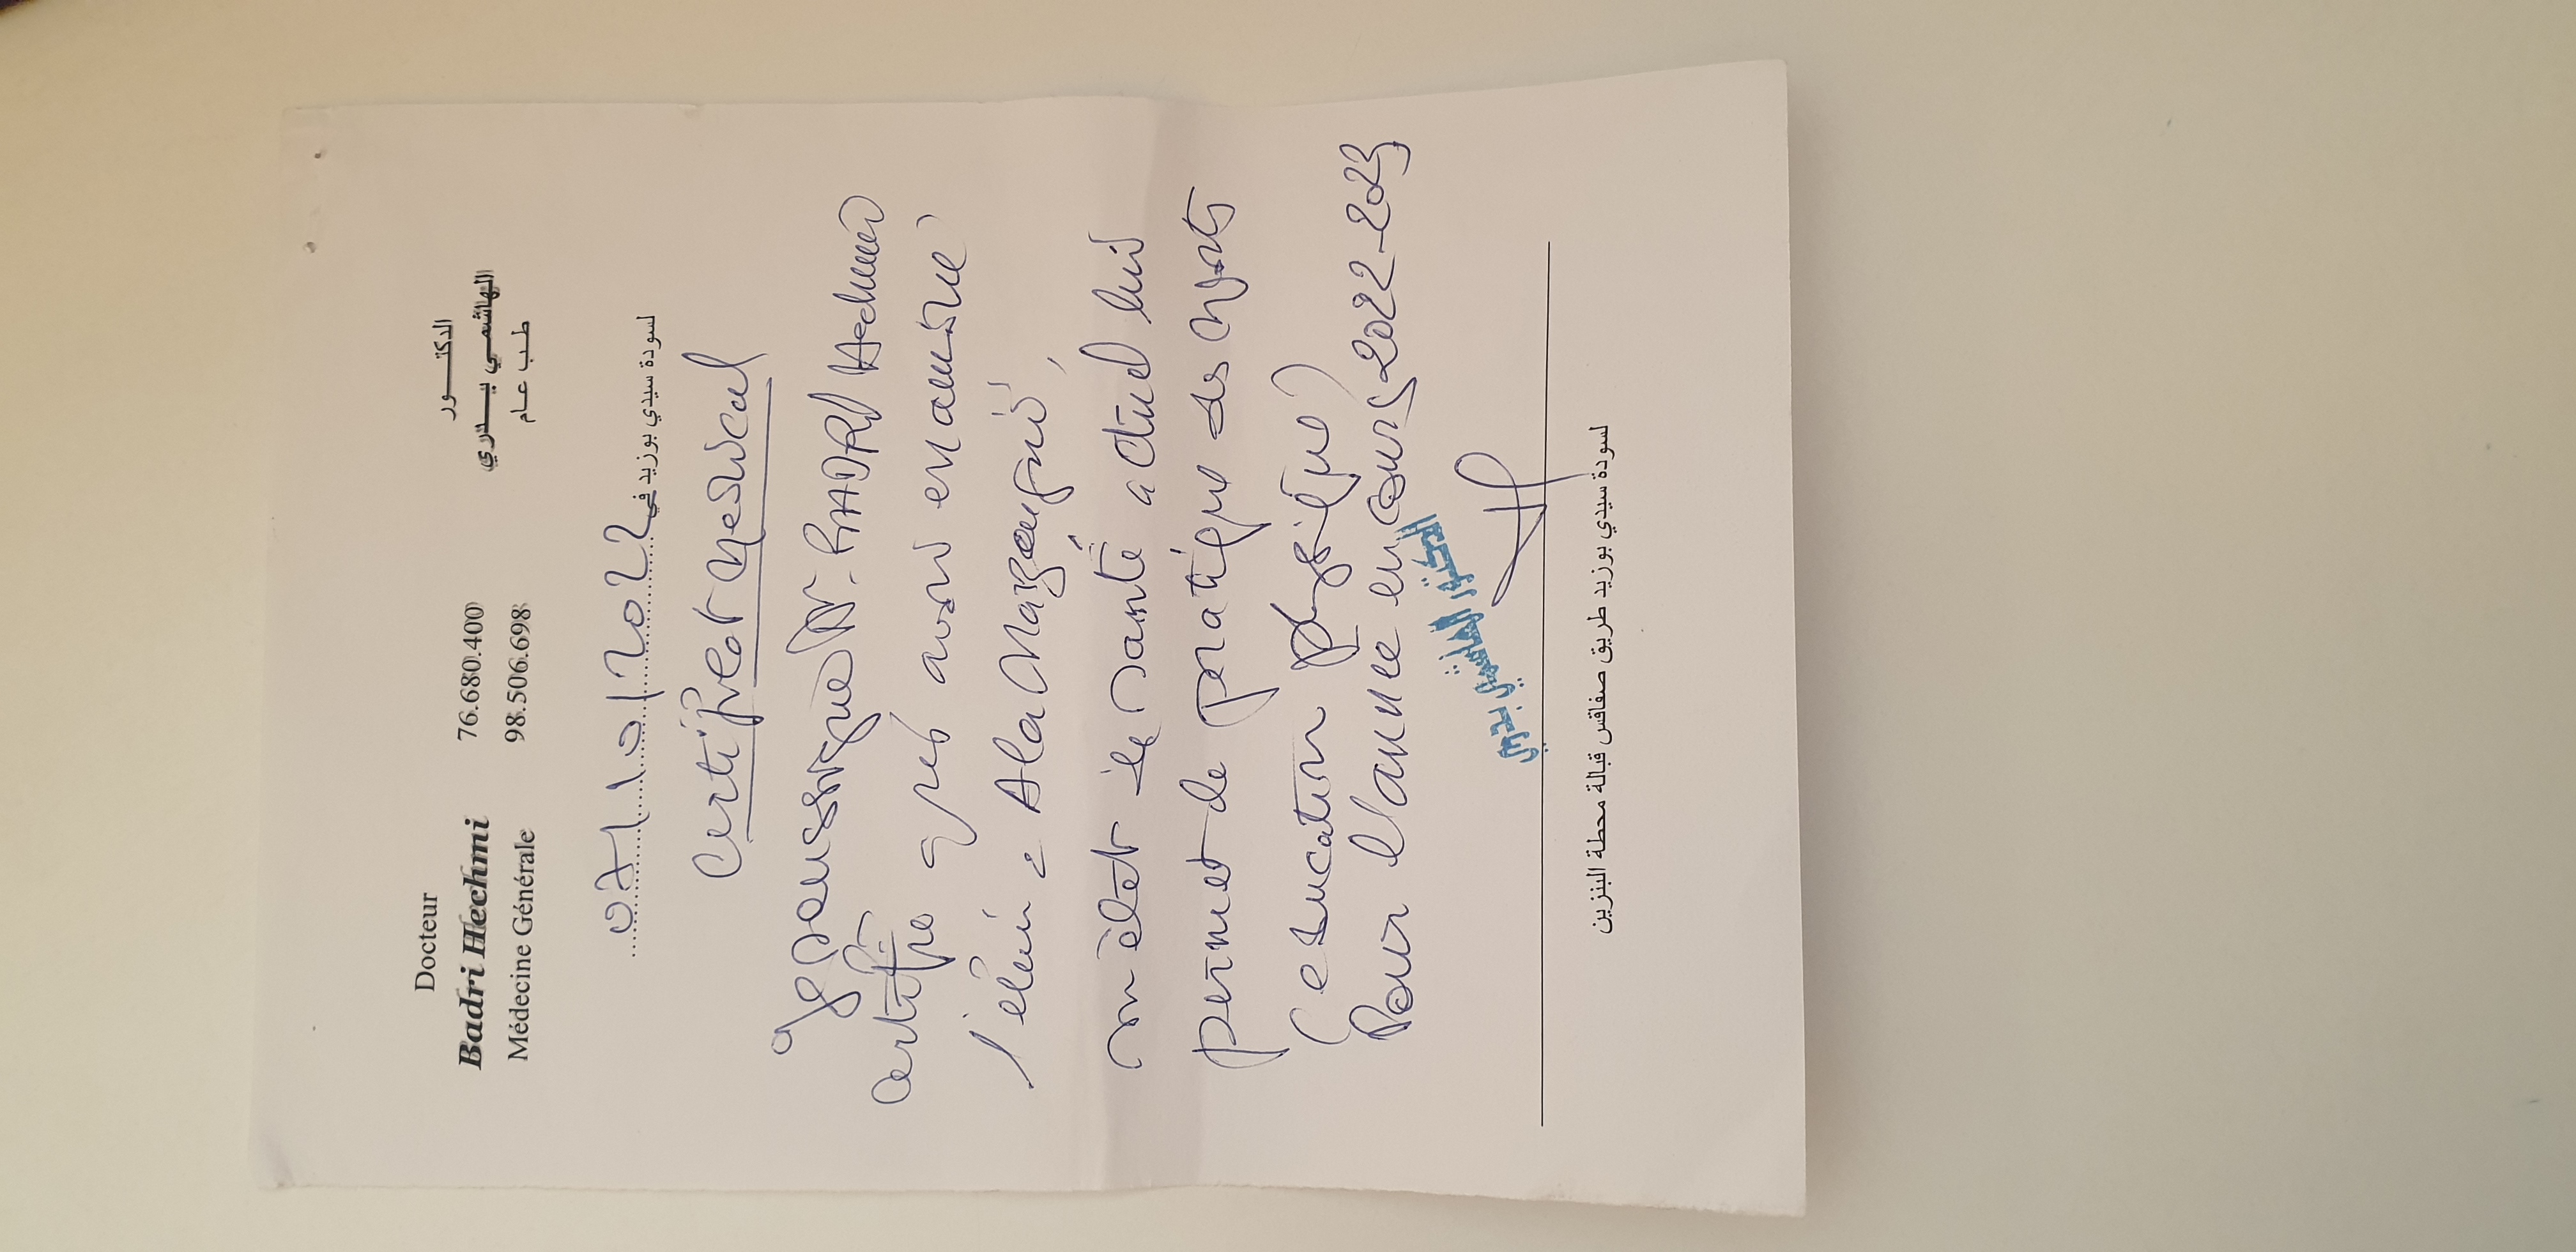 Docteur
Badri Hechmi
Médecine Générale
76.680.400
98.506.698
الدكتـــــور
الهاشمـــي بـــدري
طـب عـام
07/10/2022 لسودة سيدي بوزيد في
Certificat Medical
Je soussigné Dr. BADRI Hechmi
certifie que avoir examiné
l'élève : Ala Mazougui,
son état de santé actuel lui
permet de pratiquer des sports
(education physique)
Pour l'année en cours 2022-2023
الدكتور الهاشمي بدري
لسودة سيدي بوزيد طريق صفاقس قبالة محطة البنزين